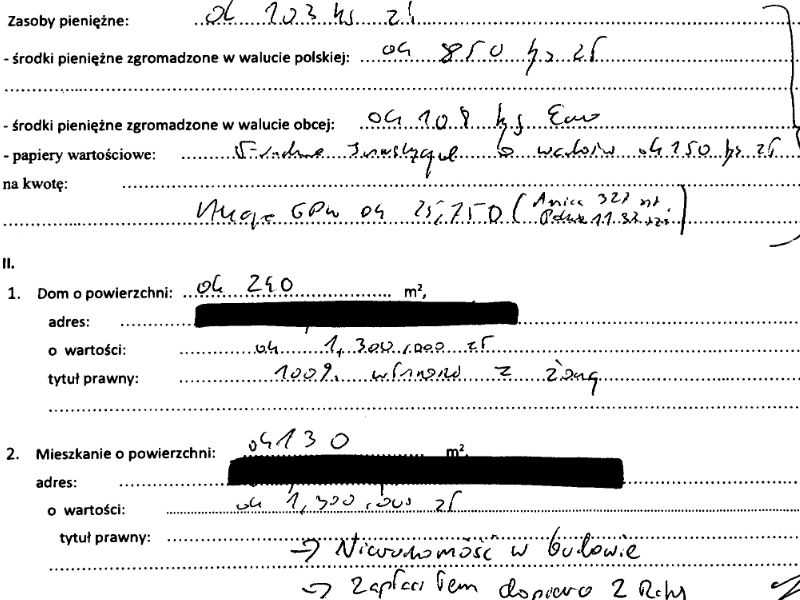 Zasoby pieniężne: ok 103 tys zł
- środki pieniężne zgromadzone w walucie polskiej: ok 850 tys zł
- środki pieniężne zgromadzone w walucie obcej: ok 108 tys Euro
- papiery wartościowe: o wartości ok 150 tys zł
na kwotę:
Akcje GPW ok 25,750 ( 322 szt
11.32
II.
1. Dom o powierzchni: ok 240 m²,
adres:
o wartości: ok 1,300,000 zł
tytuł prawny: 100% własność z żoną
2. Mieszkanie o powierzchni: ok 130 m²,
adres:
o wartości: ok 1,300,000 zł
tytuł prawny:
→ Nieruchomość w budowie
→ Zapłaciłem dopiero 2 Raty